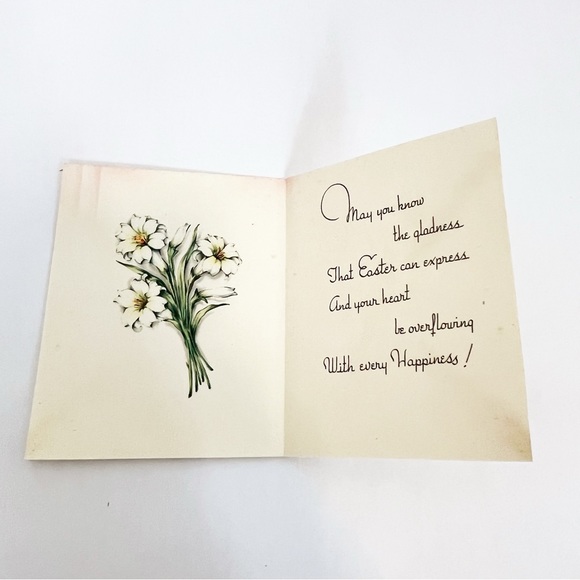 May you know
the gladness
That Easter can express
And your heart
be overflowing
With every Happiness!